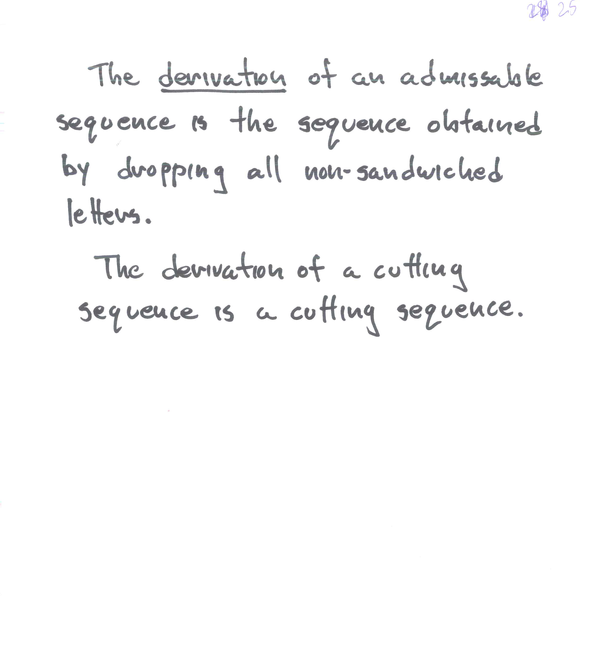 25
The derivation of an admissable
sequence is the sequence obtained
by dropping all non-sandwiched
letters.
The derivation of a cutting
sequence is a cutting sequence.